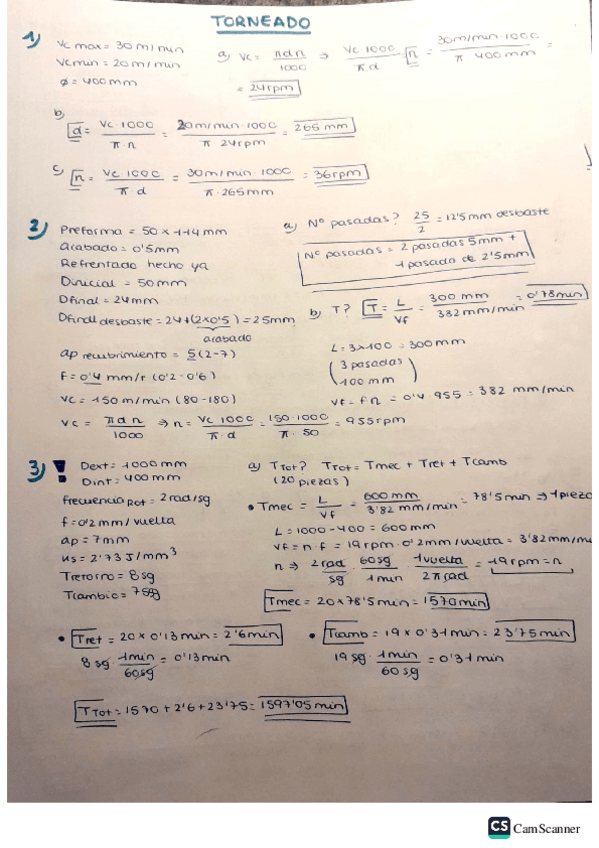 TORNEADO
1) Vc max = 30 m/min
Vc min = 20 m/min
ø = 400 mm
a) Vc = πdn/1000 ⇒ Vc·1000/πd = n = 30m/min·1000/π 400mm =
= 24rpm
b) d = Vc·1000/π n = 20m/min·1000/π·24rpm = 265 mm
c) n = Vc·1000/π d = 30m/min·1000/π·265mm = 36rpm
2) Preforma = 50 x 114 mm
Acabado = 0'5mm
Refrentado hecho ya
Dinicial = 50mm
Dfinal = 24mm
Dfinal desbaste = 24+(2x0'5) = 25mm
acabado
ap recubrimiento = 5 (2-7)
f = 0'4 mm/r (0'2-0'6)
Vc = 150 m/min (80-180)
Vc = πdn/1000 ⇒ n = Vc·1000/π·d = 150·1000/π·50 = 955rpm
a) Nº pasadas? 25/2 = 12'5mm desbaste
Nº pasadas = 2 pasadas 5mm +
1 pasada de 2'5mm
b) T? T = L/Vf = 300 mm/382 mm/min = 0'78min
L = 3x100 = 300mm
(3 pasadas
100 mm)
Vf = f·n = 0'4·955 = 382 mm/min
3) ! Dext = 1000 mm
Dint = 400 mm
Frecuencia Rot = 2 rad/sg
f = 0'2 mm/vuelta
ap = 7mm
us = 2'73 J/mm³
Tretorno = 8sg
Tcambio = 75sg
a) Ttot? Ttot = Tmec + Tret + Tcamb
(20 piezas)
• Tmec = L/Vf = 600 mm/3'82 mm/min = 78'5min → 1 pieza
L = 1000-400 = 600mm
Vf = n·f = 19rpm·0'2mm/vuelta = 3'82mm/mi
n ⇒ 2rad/sg · 60sg/1min · 1vuelta/2π rad = 19rpm = n
Tmec = 20x78'5min = 1570min
• Tret = 20x0'13min = 2'6min
8 sg · 1min/60sg = 0'13min
• Tcamb = 19x0'31min = 23'75min
19sg · 1min/60sg = 0'31min
Ttot = 1570 + 2'6 + 23'75 = 1597'05min
CS CamScanner